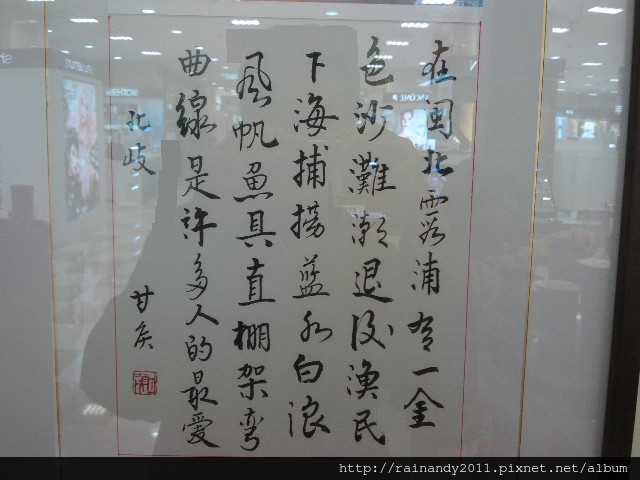 在閩北霞浦有一金
色沙灘潮退後漁民
下海捕撈藍水白浪
風帆魚具直棚架彎
曲線是許多人的最愛
北岐
甘侯
http://rainandy2011.pixnet.net/album